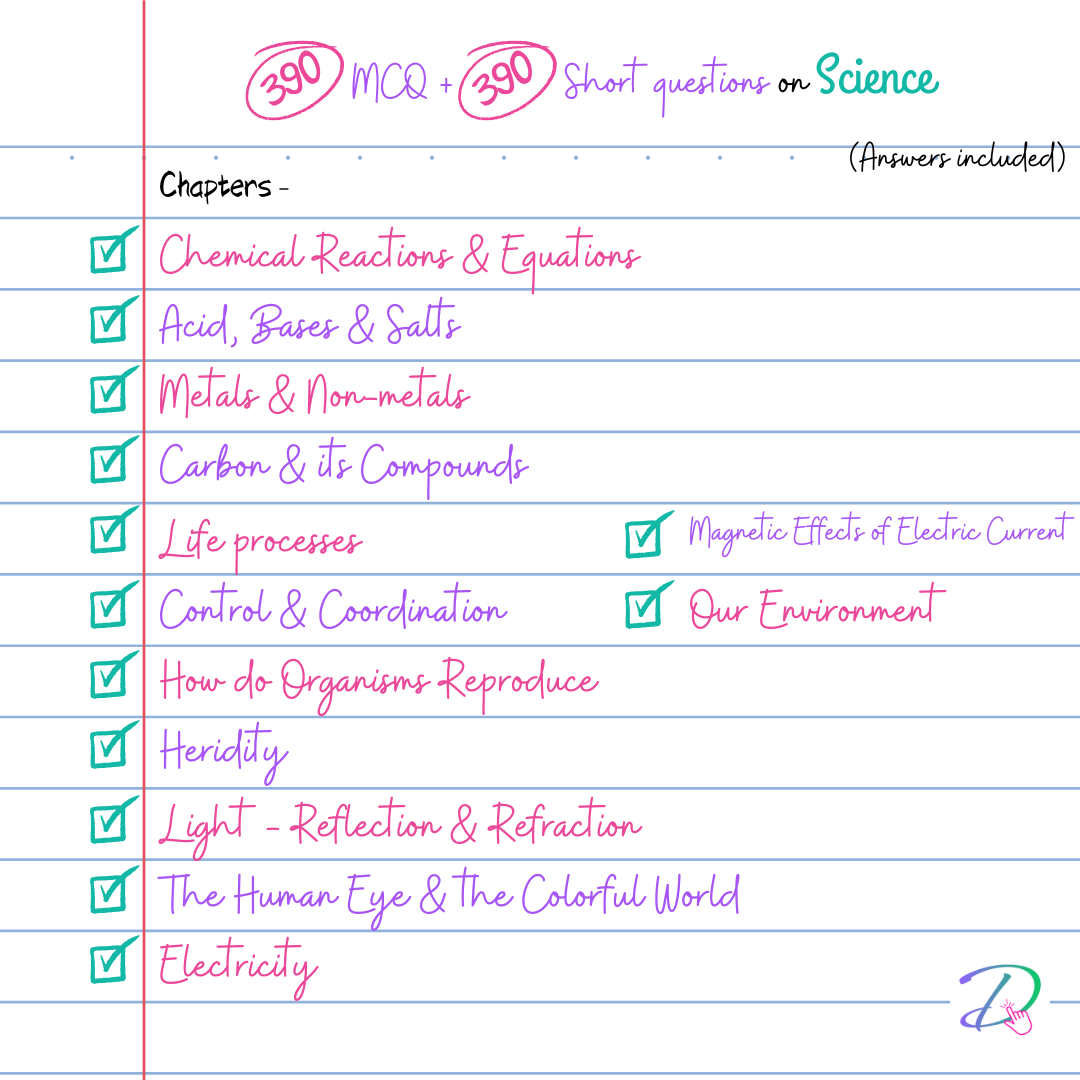 390 MCQ + 390 Short questions on Science
(Answers included)
Chapters -
Chemical Reactions & Equations
Acid, Bases & Salts
Metals & Non-metals
Carbon & its Compounds
Life processes
Control & Coordination
How do Organisms Reproduce
Heridity
Light - Reflection & Refraction
The Human Eye & The Colorful World
Electricity
Magnetic Effects of Electric Current
Our Environment
D